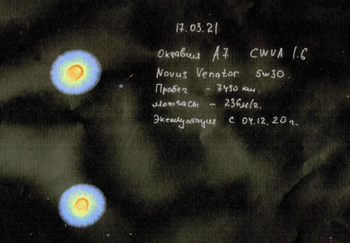 17.03.21
Октавия A7 CWVA 1.6
Novus Venator 5w30
Пробег - 7490 км.
моточасы - 236м/г.
Эксплуатация с 04.12.20г.